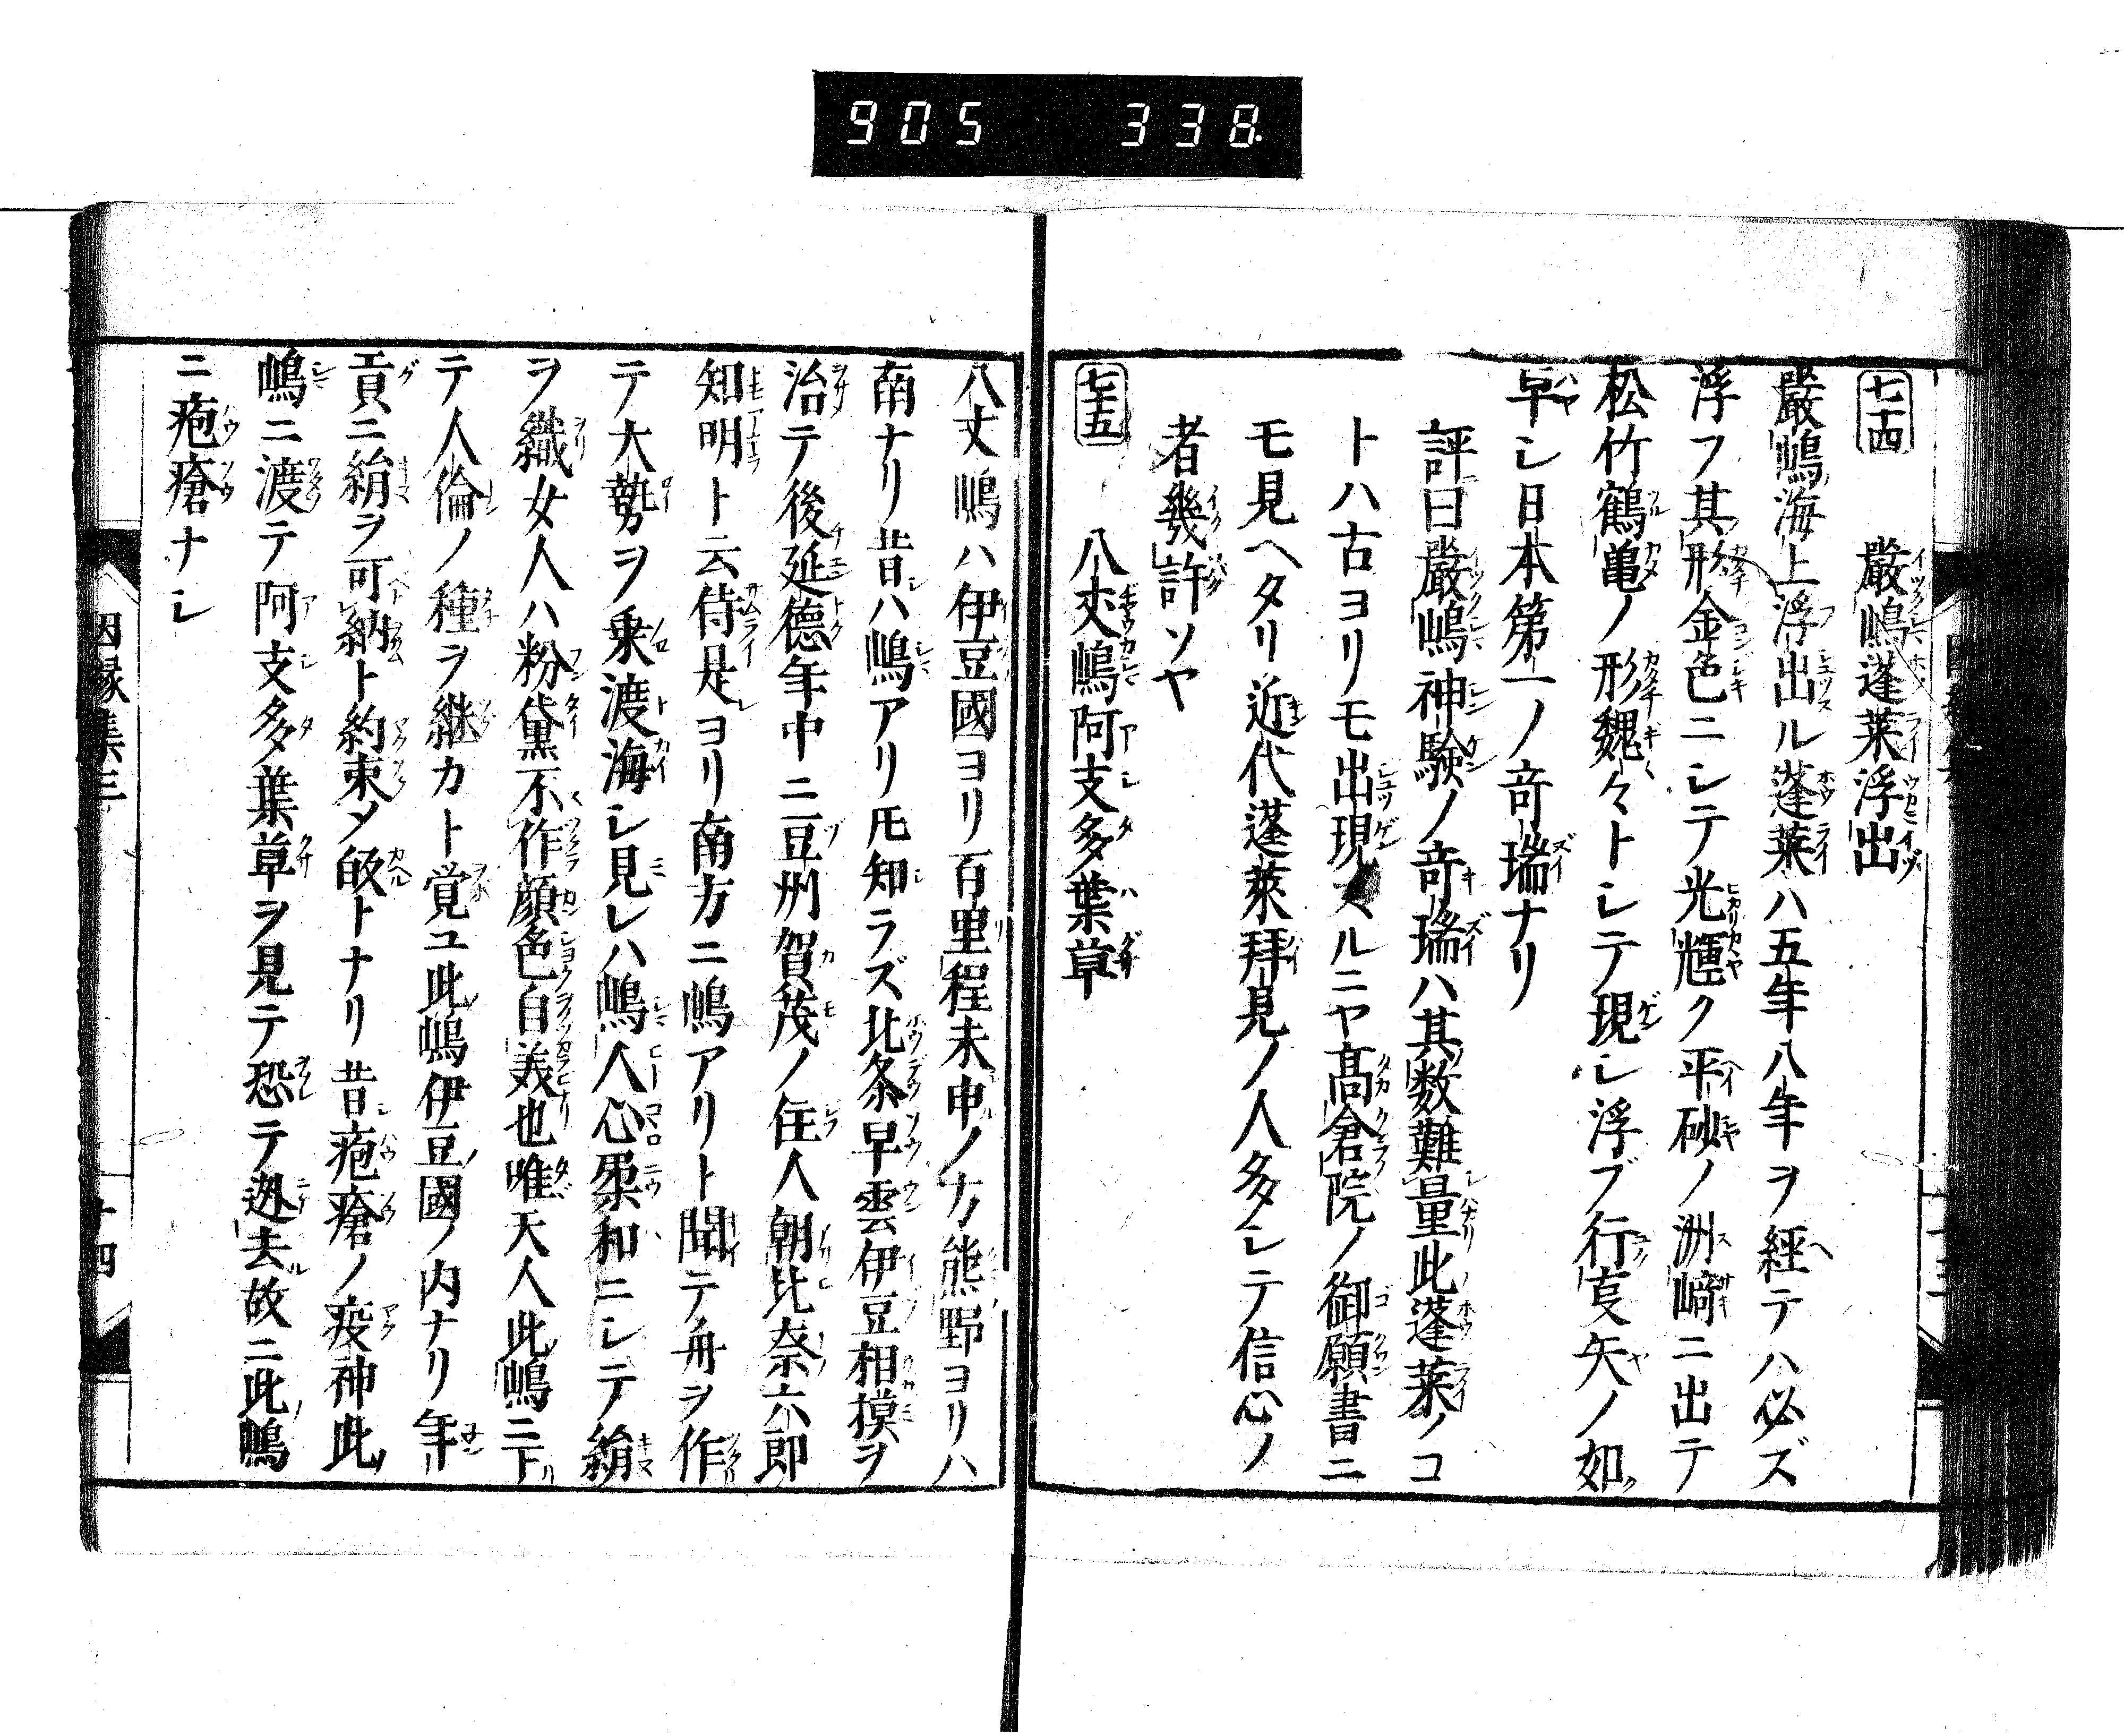 905 338
七十四 嚴嶋蓬莱浮出
嚴嶋海上浮出ル蓬莱ハ五年八年ヲ經テハ必ズ
浮フ其形金色ニシテ光輝ク平砂ノ洲﨑ニ出テ
松竹鶴亀ノ形巍々トシテ現シ浮ブ行㕝矢ノ如ク
早シ日本第一ノ竒瑞ナリ
評曰嚴嶋神驗ノ竒瑞ハ其数難量此蓬莱ノコ
トハ古ヨリモ出現スルニヤ髙倉院ノ御願書ニ
モ見ヘタリ近代蓬萊拜見ノ人多シテ信心ノ
者幾許ソヤ
七十五 八丈嶋阿支多葉草
八丈嶋ハ伊豆國ヨリ百里程未申ノ方熊野ヨリハ
南ナリ昔ハ嶋アリ𪜈知ラズ北条早雲伊豆相摸ヲ
治テ後延德年中ニ豆州賀茂ノ住人朝比奈六郎
知明ト云侍是ヨリ南方ニ嶋アリト聞テ舟ヲ作
テ大勢ヲ乗渡海シ見レハ嶋人心柔和ニシテ絹
ヲ織女人ハ粉黛不作顔色自美也唯天人此嶋ニ下
テ人倫ノ種ヲ継カト覚ユ此嶋伊豆國ノ内ナリ年
貢ニ絹ヲ可納ト約束シ皈トナリ昔疱瘡ノ疫神此
嶋ニ渡テ阿支多葉草ヲ見テ恐テ迯去故ニ此嶋
ニ疱瘡ナシ
因縁集三 十四